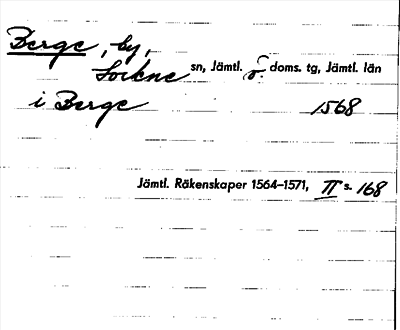 Berge, by,
Lockne sn, Jämtl. ö. doms. tg, Jämtl. län
i Berge 1568
Jämtl. Räkenskaper 1564–1571, II s. 168